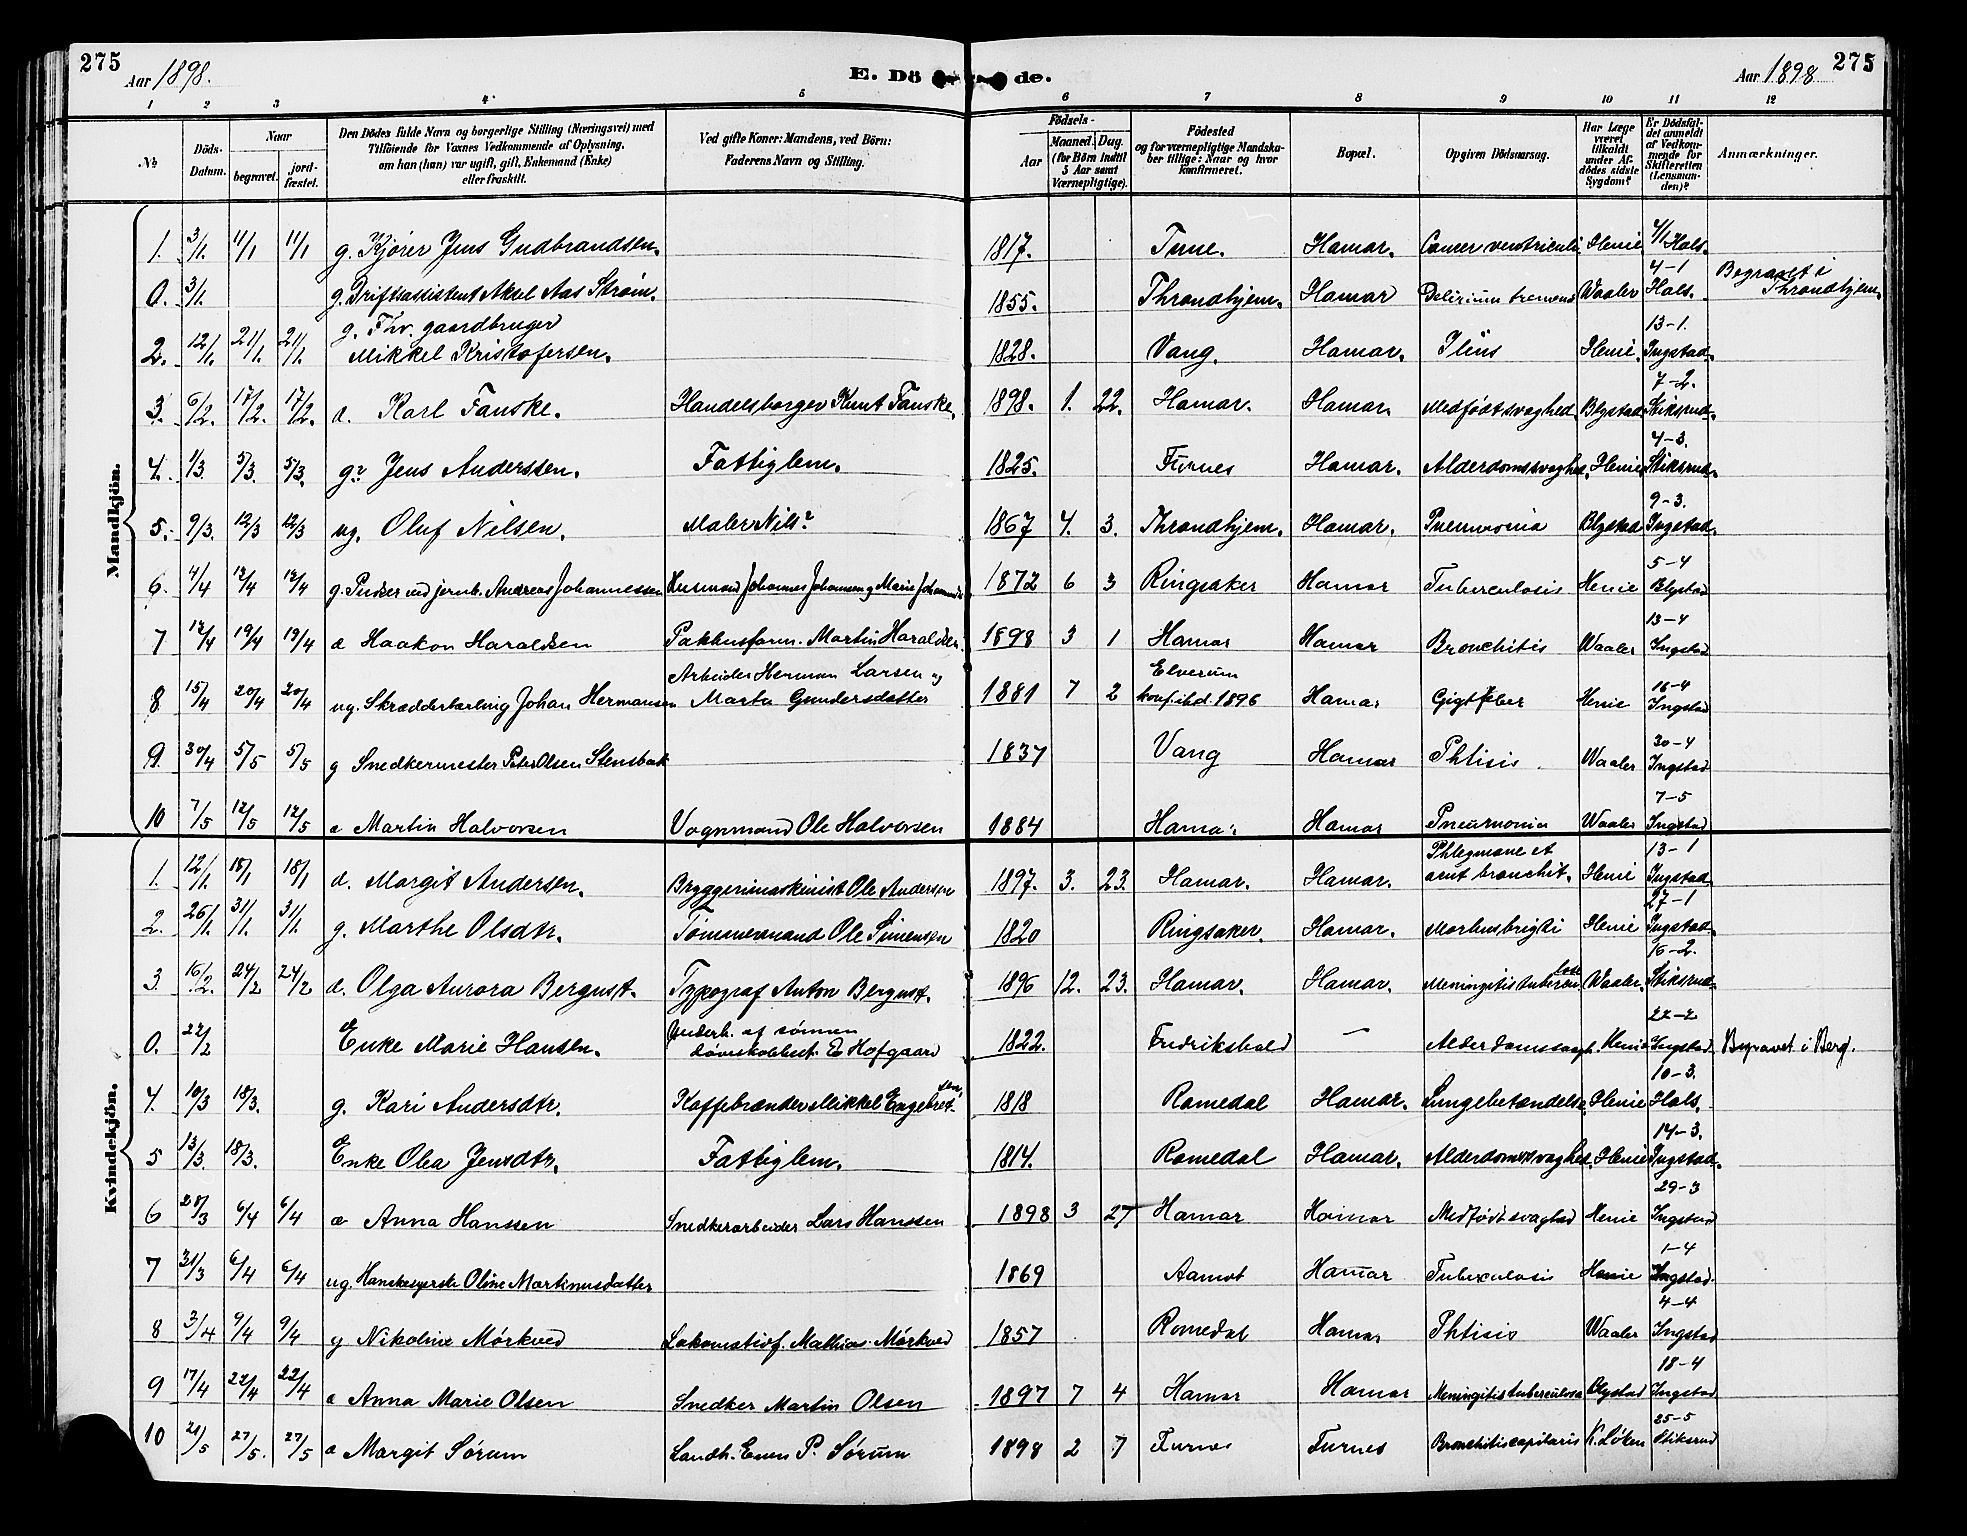 275
Aar 1898.
E. Dö de.
Aar 1898
275
1 2 3 4 5 6 7 8 9 10 11 12
No
Döds-Datum.
Naar
begravet.
jord-fæstet.
Den Dödes fulde Navn og borgerlige Stilling (Næringsvei) med
Tilföiende for Voxnes Vedkommende af Oplysning,
om han (hun) var ugift, gift, Enkemand (Enke)
eller fraskilt.
Ved gifte Koner: Mandens, ved Börn:
Faderens Navn og Stilling.
Födsels-
Aar
Maaned. Dag.
(for Börn indtil
5 Aar samt
Værnepligtige).
Födested
og for værnepligtige Mandska-
ber tillige: Naar og hvor
konfirmeret.
Bopæl.
Opgiven Dödsaarsag.
Har Læge
været
tilkaldt
under Af-
dödes sidste
Sygdom?
Er Dödsfal-
det anmeldt
af Vedkom-
mende for
Skifteretten
(Lensman-
den)?
Anmærkninger.
Mandkjön.
1. 3/1. 11/1 11/1 g. Kjører Jens Gudbrandsen. 1817. Hamar. Cancer ventriculi Henie 4/1 Hals.
0. 3/1. g. Driftsassistent Axel Aas Strøm. 1855. Throndhjem. Hamar Delirium tremens Waaler 4-1 Hals. Begravet i Throndhjem.
2. 12/1. 21/1. 21/1. g. Fhv. gaardbruger
Mikkel Kristofersen. 1828. Vang. Hamar. Ileus Henie 13-1. Ingstad.
3. 6/2. 17/2. 17/2. d. Karl Fanske. Handelsborger Knut Fanske. 1898. 1. 22. Hamar. Hamar. Medfødt svaghed. Blystad 7-2. Stiksrud.
4. 1/3. 5/3. 5/3. g? Jens Anderssen. Fattiglem. 1825. Furnes Hamar. Alderdomssvaghed. Henie 4-3. Stiksrud.
5. 9/3. 12/3 12/3 ug. Oluf Nilsen. Maler Nils? 1867 4. 3. Throndhjem. Hamar. Pneumonia Blystad 9-3. Ingstad.
6. 4/4 12/4 12/4 g. Pudser ved jernb. Andreas Johannessen Husmand Johannes Johansen og Marie 1872 6 3 Ringsaker Hamar Tuberculosis Henie 5-4 Blystad
7 12/4 19/4 19/4 d Haakon Haraldsen Pakhusform. Martin Haraldsen. 1898 3 1 Hamar Hamar Bronchitis Waaler 13-4 Ingstad
8 15/4 20/4 20/4 ug. Skrædderlærling Johan Hermansen Arbeider Herman Larsen og
Marta Gundersdatter 1881 7 2 Elverum
konf. ibd. 1896 Hamar Gigtfeber Henie 16-4 Ingstad
9. 30/4 5/5 5/5 g Snedkermester Peter Olsen Stensbak 1837 Vang Hamar Phtisis. Waaler 30-4 Ingstad
10 7/5 12/5 12/5 d Martin Halvorsen Vognmand Ole Halvorsen 1884 Hamar Hamar Pneumonia Waaler 7-5 Ingstad
Kvindekjön.
1. 12/1. 18/1 18/1 d. Margit Andersen. Bryggerimaskinist Ole Andersen 1897. 3. 23. Hamar. Hamar. Phlegmone et
acut bronchit. Henie 13-1 Ingstad.
2. 26/1. 31/1. 31/1. g. Marthe Olsdtr. Tømmermand Ole Simensen 1820 Ringsaker. Hamar. Morbus brigti Henie 27-1 Ingstad.
3. 16/2. 24/2 24/2 d. Olga Aurora Bergust. Typograf Anton Bergust. 1896 12. 23. Hamar. Hamar. Meningitis tubercu Waaler. 16-2. Stiksrud.
0. 22/2 Enke Marie Hansen. Underh. af sönnen
E Hofgaard 1822. Fredrikshald — Alderdomssvagh. Henie 22-2 Ingstad. Begravet i Berg.
4. 10/3 18/3. g. Kari Andersdtr. Kaffebrænder Mikkel Engebretsen. 1818 Romedal Hamar. Lungebetændelse Henie 10-3. Hals.
5 13/3. 18/3. Enke Olea Jensdtr. Fattiglem. 1814. Romedal Hamar. Alderdomssvaghed. Henie 14-3. Ingstad.
6 28/3 6/4 6/4 d Anna Hanssen Snedkerarbeider Lars Hanssen 1898 3 27 Hamar Hamar Medfødt svaghed Henie 29-3 Ingstad
7 31/3 6/4 6/4 ug. Hanskesyerske Oline Martinusdatter 1869 Aamot Hamar Tuberculosis Henie 1-4 Ingstad.
8 3/4 9/4 9/4 g Nikoline Mórkved Lokomotivf. Mathias Mórkved 1857 Romedal Hamar Phtisis Waaler 4-4 Ingstad
9 17/4 22/4 22/4 d Anna Marie Olsen Snedker Martin Olsen 1897 7 4 Hamar Hamar Meningitis tuberculosa Blystad 18-4 Ingstad
10 21/5 27/5. 27/5 d Margit Sórum Landh. Even P. Sórum 1898 2 7 Furnes Furnes Bronchitis capilaris K. Löken 25-5 Stiksrud